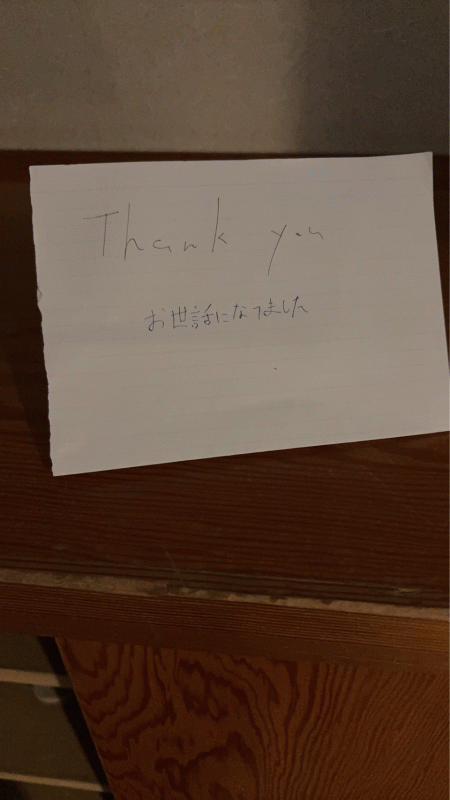 Thank you
お世話になってました